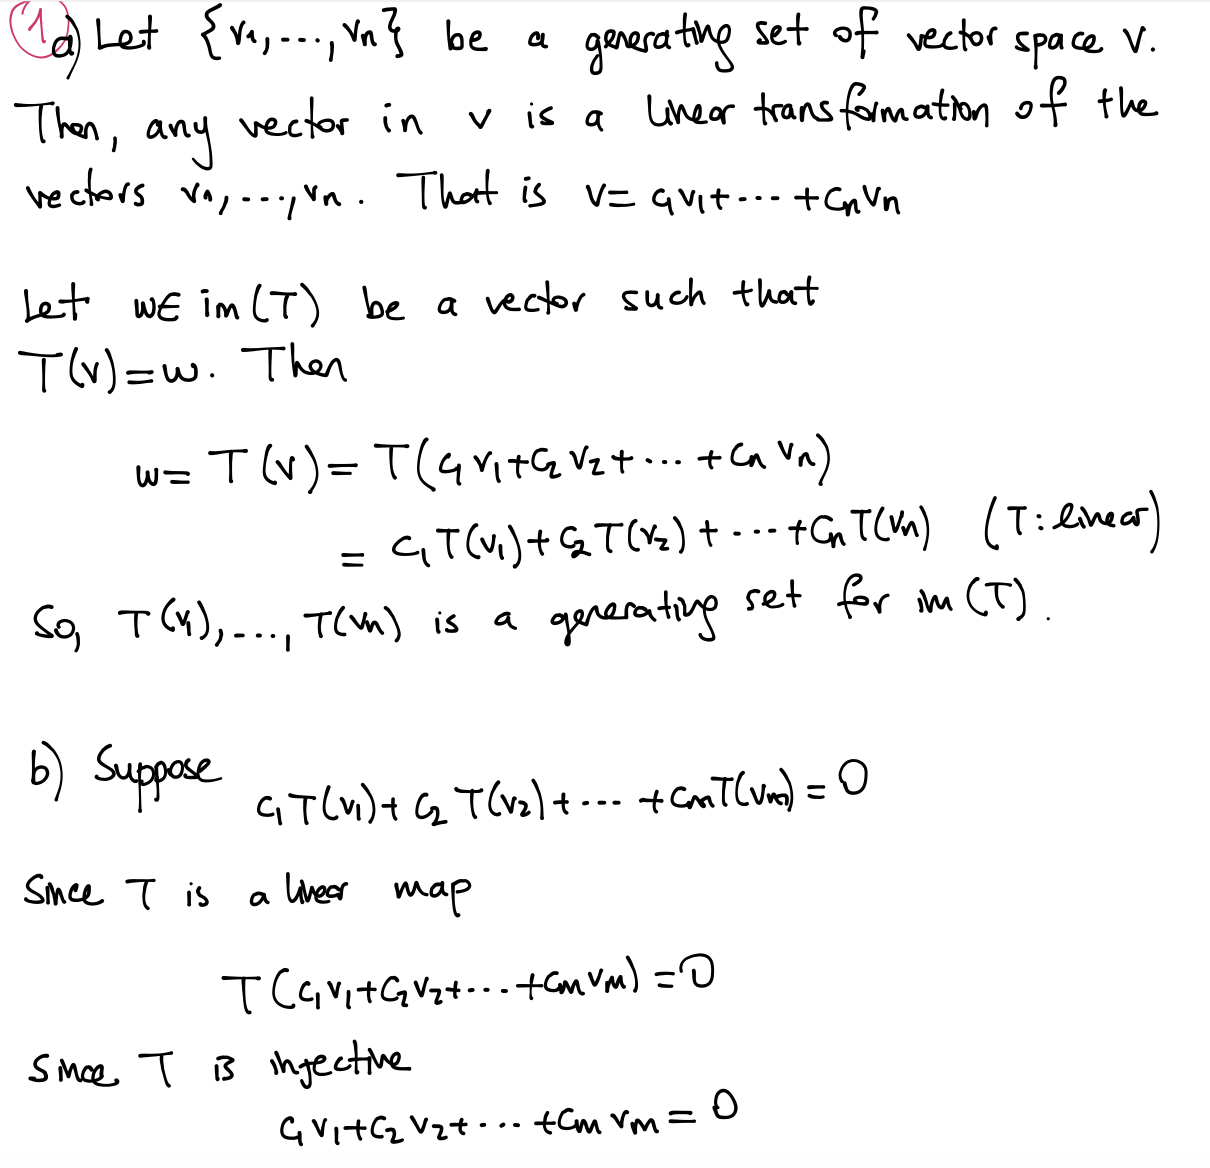 1 a) Let {v₁,...,vₙ} be a generating set of vector space V.
Then, any vector in v is a linear transformation of the
vectors v₁,...,vₙ. That is v= c₁v₁+...+cₙvₙ
Let w∈ im(T) be a vector such that
T(v)=w. Then
w= T(v)= T(c₁v₁+c₂v₂+...+cₙvₙ)
= c₁T(v₁)+c₂T(v₂)+...+cₙT(vₙ) (T: linear)
So, T(v₁),...,T(vₙ) is a generating set for im(T).
b) Suppose
c₁T(v₁)+c₂T(v₂)+...+cₘT(vₘ)=0
Since T is a linear map
T(c₁v₁+c₂v₂+...+cₘvₘ)=0
Since T is injective
c₁v₁+c₂v₂+...+cₘvₘ=0